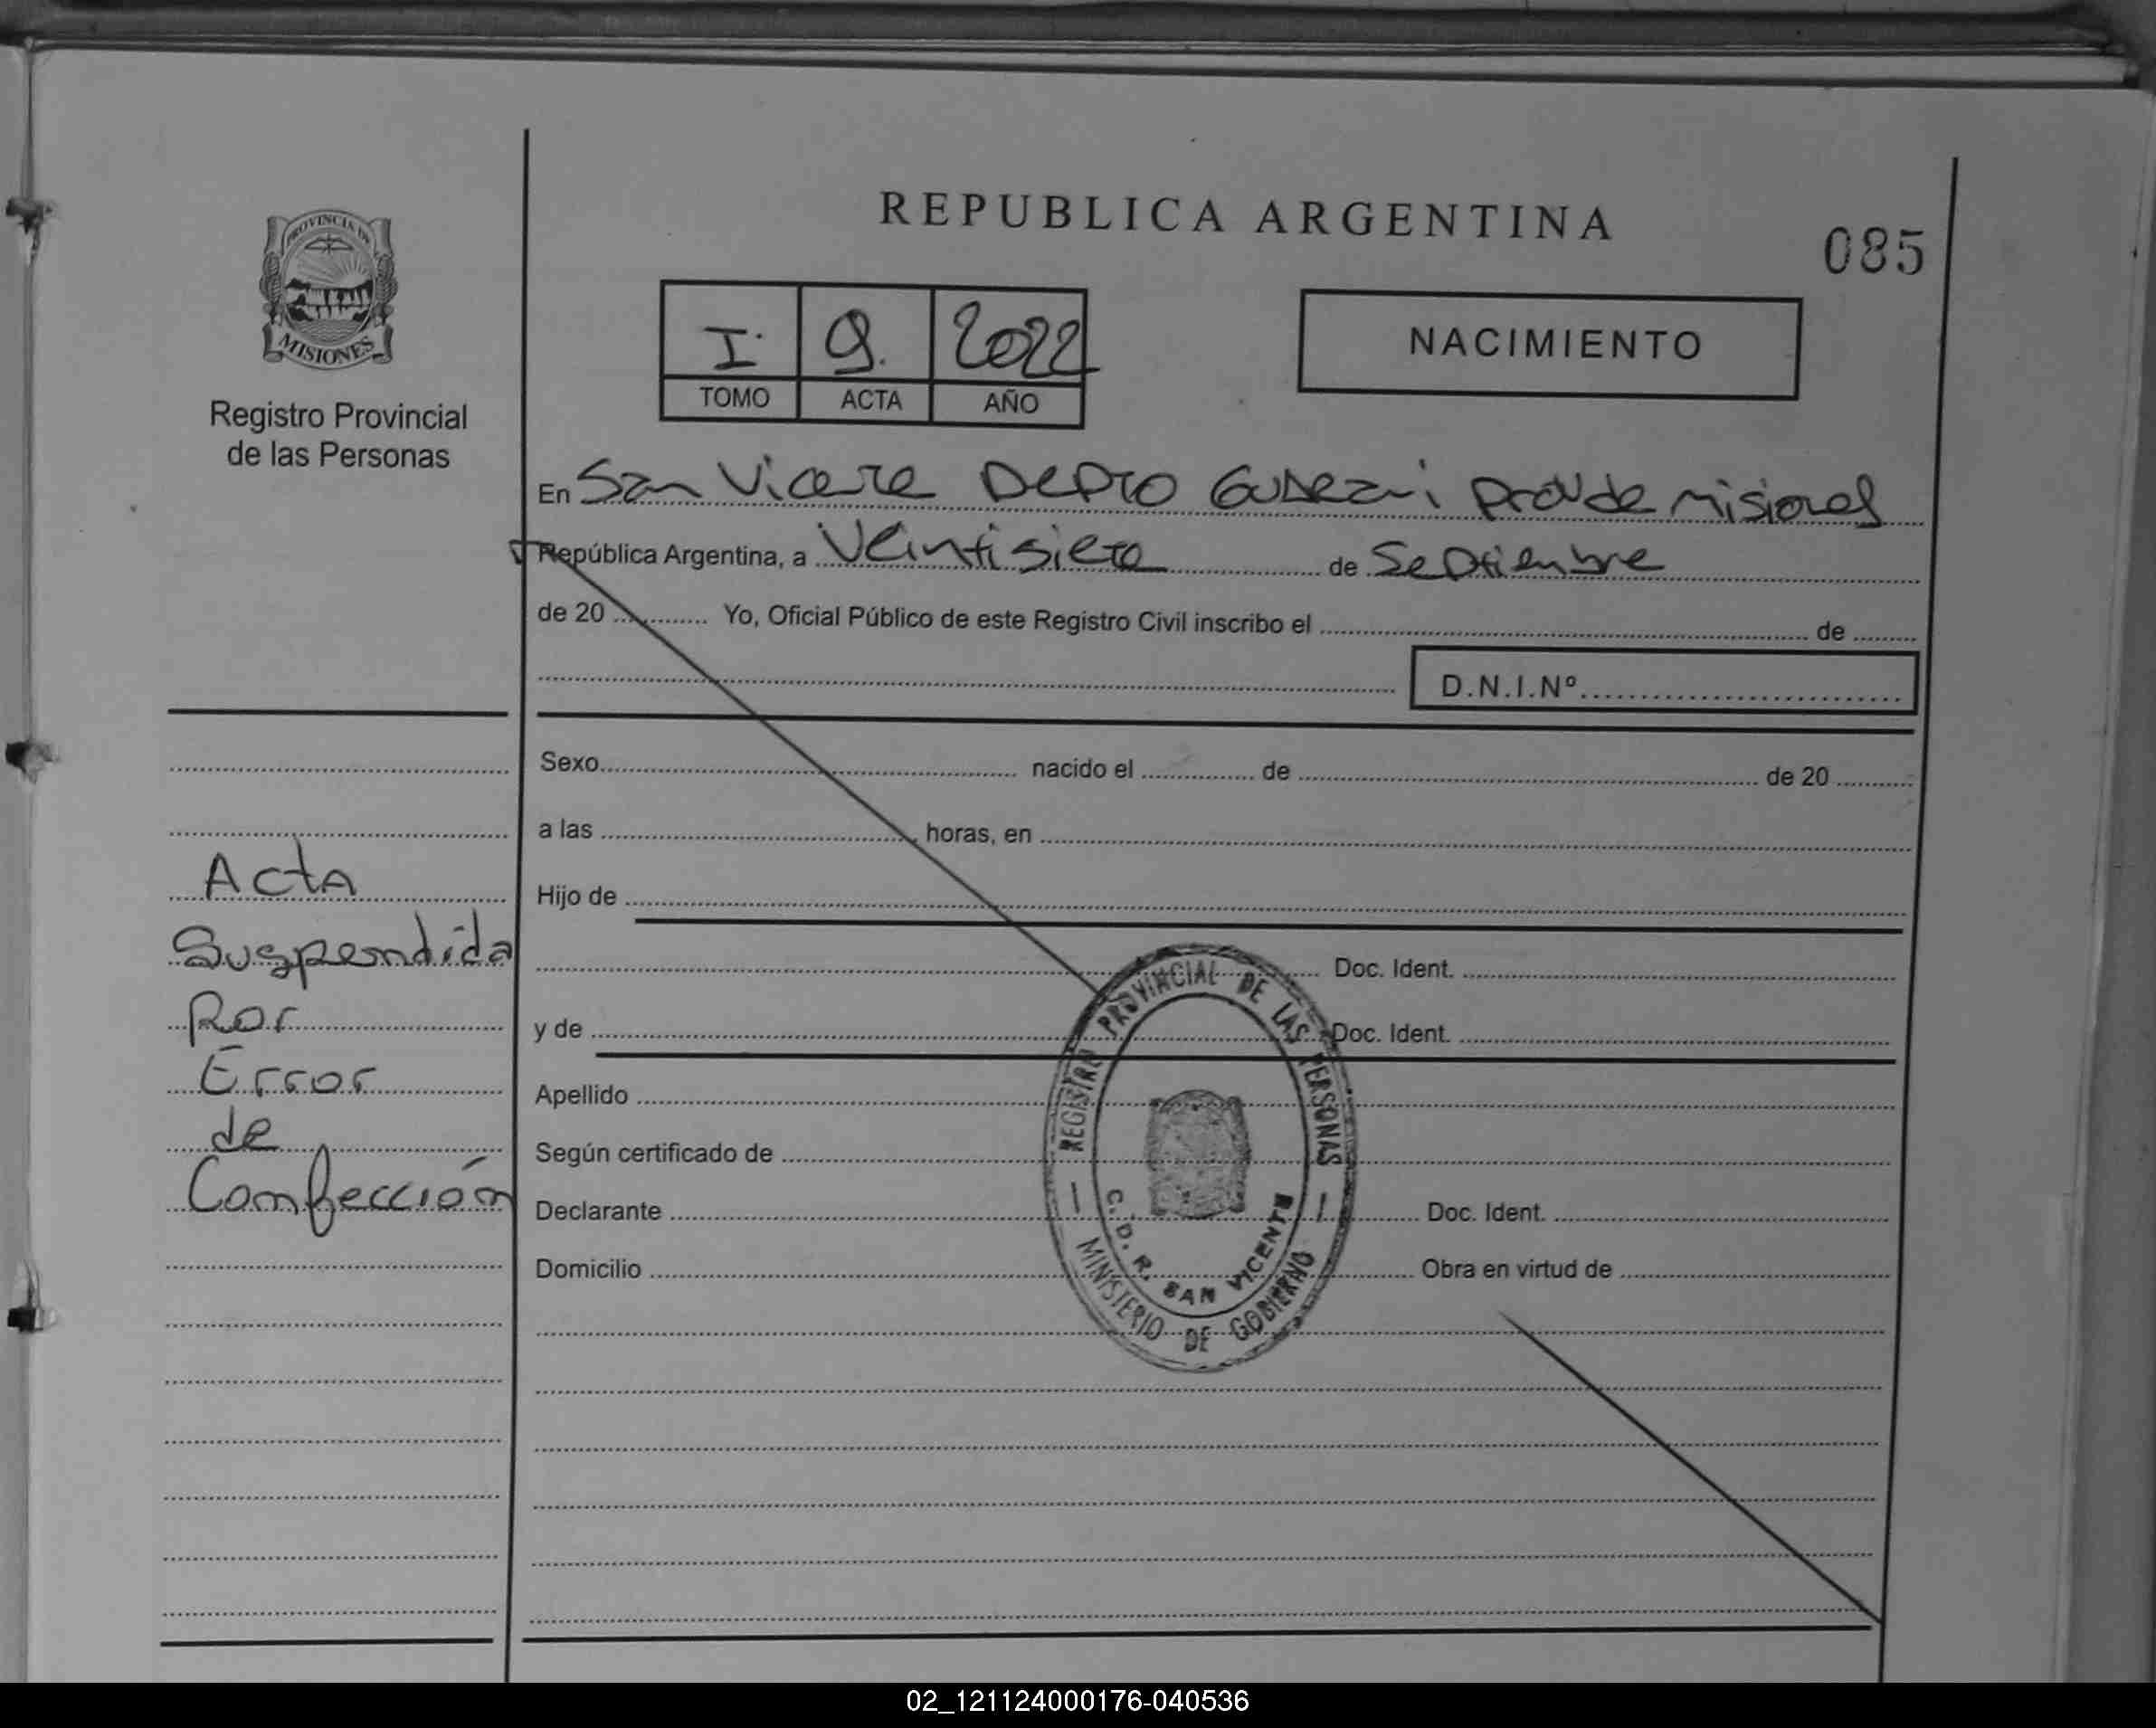 PROVINCIA DE
MISIONES
Registro Provincial
de las Personas
REPUBLICA ARGENTINA
085
I. 9. 2022
TOMO ACTA AÑO
NACIMIENTO
En San Vicente Depto Guarani prov de Misiones
República Argentina, a Veintisiete de Septiembre
de 20 Yo, Oficial Público de este Registro Civil inscribo el de
D.N.I.Nº
Sexo nacido el de de 20
a las horas, en
Hijo de
Doc. Ident.
y de Doc. Ident.
Apellido
Según certificado de
Declarante Doc. Ident.
Domicilio Obra en virtud de
Acta
Suspendida
Por
Error
de
Comfección
REGISTRO PROVINCIAL DE LAS PERSONAS
C. D. R. SAN VICENTE
MINISTERIO DE GOBIERNO
02_121124000176-040536